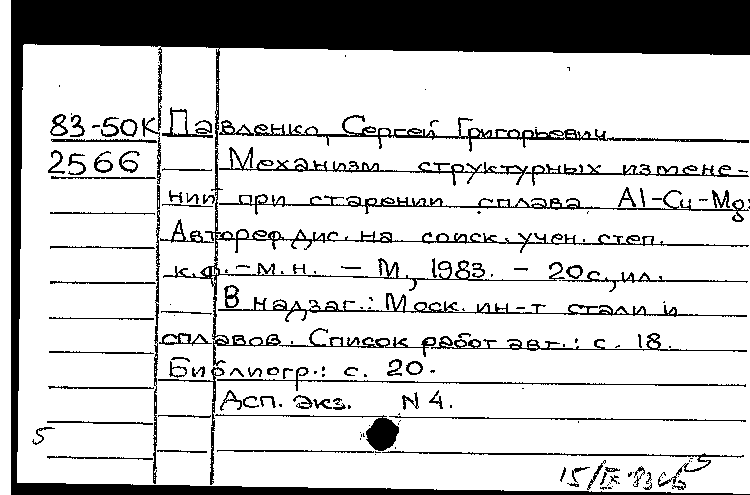 83-50К Павленко, Сергей Григорьевич
2566 Механизм структурных измене-
ний при старении сплава Al-Cu-Mg:
Автореф. дис. на соиск. учен. степ.
к.ф.-м.н. - М., 1983. - 20с., ил.
В надзаг.: Моск. ин-т стали и
сплавов. Список работ авт.: с. 18.
Библиогр.: с. 20.
Дсп. экз. N 4.
5
15/IX-83